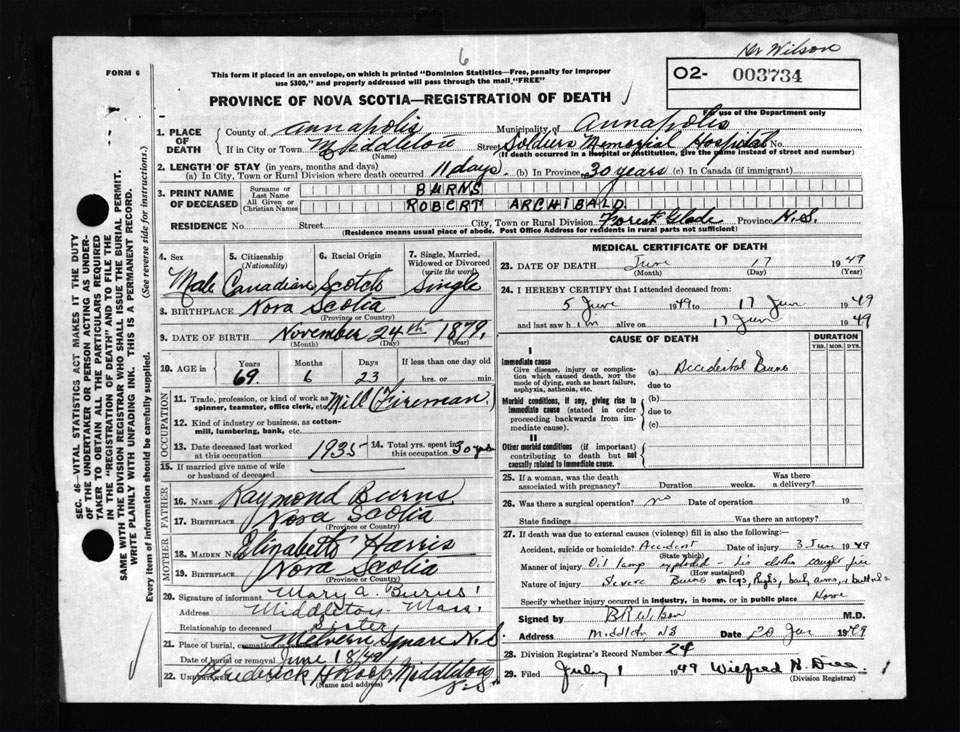 6
Dr Wilson
FORM 6
This form if placed in an envelope, on which is printed "Dominion Statistics—Free, penalty for improper
use $300," and properly addressed will pass through the mail "FREE"
O2- 003734
For use of the Department only
PROVINCE OF NOVA SCOTIA—REGISTRATION OF DEATH
1. PLACE OF DEATH
County of Annapolis Municipality of Annapolis
If in City or Town Middleton Street Soldiers Memorial Hospital No.
(Name) (If death occurred in a hospital or institution, give the name instead of street and number)
2. LENGTH OF STAY (in years, months and days)
(a) In City, Town or Rural Division where death occurred 11 days. (b) In Province 30 years (c) In Canada (if immigrant)
3. PRINT NAME OF DECEASED
Surname or Last Name BURNS
All Given or Christian Names ROBERT ARCHIBALD.
RESIDENCE No. Street City, Town or Rural Division Forest Glade Province N.S.
(Residence means usual place of abode. Post Office Address for residents in rural parts not sufficient)
4. Sex Male
5. Citizenship (Nationality) Canadian
6. Racial Origin Scotch
7. Single, Married, Widowed or Divorced (write the word) Single
8. BIRTHPLACE Nova Scotia
(Province or Country)
9. DATE OF BIRTH November 24th 1879
(Month) (Day) (Year)
10. AGE in Years 69. Months 6 Days 23 If less than one day old hrs. or min.
OCCUPATION
11. Trade, profession, or kind of work as spinner, teamster, office clerk, etc. Mill (Fireman.)
12. Kind of industry or business, as cotton-mill, lumbering, bank, etc.
13. Date deceased last worked at this occupation 1935
14. Total yrs. spent in this occupation 30 yrs
15. If married give name of wife or husband of deceased
FATHER
16. NAME Raymond Burns
17. BIRTHPLACE Nova Scotia
(Province or Country)
MOTHER
18. MAIDEN NAME Elizabeth Harris
19. BIRTHPLACE Nova Scotia
(Province or Country)
20. Signature of informant Mary A. Burns
Address Middleton Mass.
Relationship to deceased Sister
21. Place of burial, cremation or removal Melvern Square N.S
Date of burial or removal June 18/49
22. UNDERTAKER Frederick H Roop Middleton N.S.
(Name and address)
MEDICAL CERTIFICATE OF DEATH
23. DATE OF DEATH June 17 1949
(Month) (Day) (Year)
24. I HEREBY CERTIFY that I attended deceased from:
5 June 1949 to 17 Jun 1949
and last saw him alive on 17 Jun 1949
CAUSE OF DEATH
DURATION
YRS. MOS. DYS.
I
Immediate cause
Give disease, injury or complication which caused death, not the mode of dying, such as heart failure, asphyxia, asthenia, etc.
(a) Accidental Burns
due to
Morbid conditions, if any, giving rise to immediate cause (stated in order proceeding backwards from immediate cause).
(b)
due to
(c)
II
Other morbid conditions (if important) contributing to death but not causally related to immediate cause.
25. If a woman, was the death associated with pregnancy? Duration weeks. Was there a delivery?
26. Was there a surgical operation? no Date of operation 19
State findings Was there an autopsy?
27. If death was due to external causes (violence) fill in also the following:—
Accident, suicide or homicide? Accident Date of injury 3 June 1949
(State which)
Manner of injury Oil lamp exploded - his clothes caught fire
(How sustained)
Nature of injury Severe Burns on legs, thighs, back, arms, & buttocks
Specify whether injury occurred in industry, in home, or in public place Home
Signed by B R Wilson M.D.
Address Middleton NS Date 20 Jun 1949
28. Division Registrar's Record Number 24
29. Filed July 1 1949 Wilfred N.
(Division Registrar)
SEC. 46—VITAL STATISTICS ACT MAKES IT THE DUTY
OF THE UNDERTAKER OR PERSON ACTING AS UNDER-
TAKER TO OBTAIN ALL THE PARTICULARS REQUIRED
IN THE "REGISTRATION OF DEATH" AND TO FILE THE
SAME WITH THE DIVISION REGISTRAR WHO SHALL ISSUE THE BURIAL PERMIT.
WRITE PLAINLY WITH UNFADING INK. THIS IS A PERMANENT RECORD.
Every item of information should be carefully supplied. (See reverse side for instructions.)